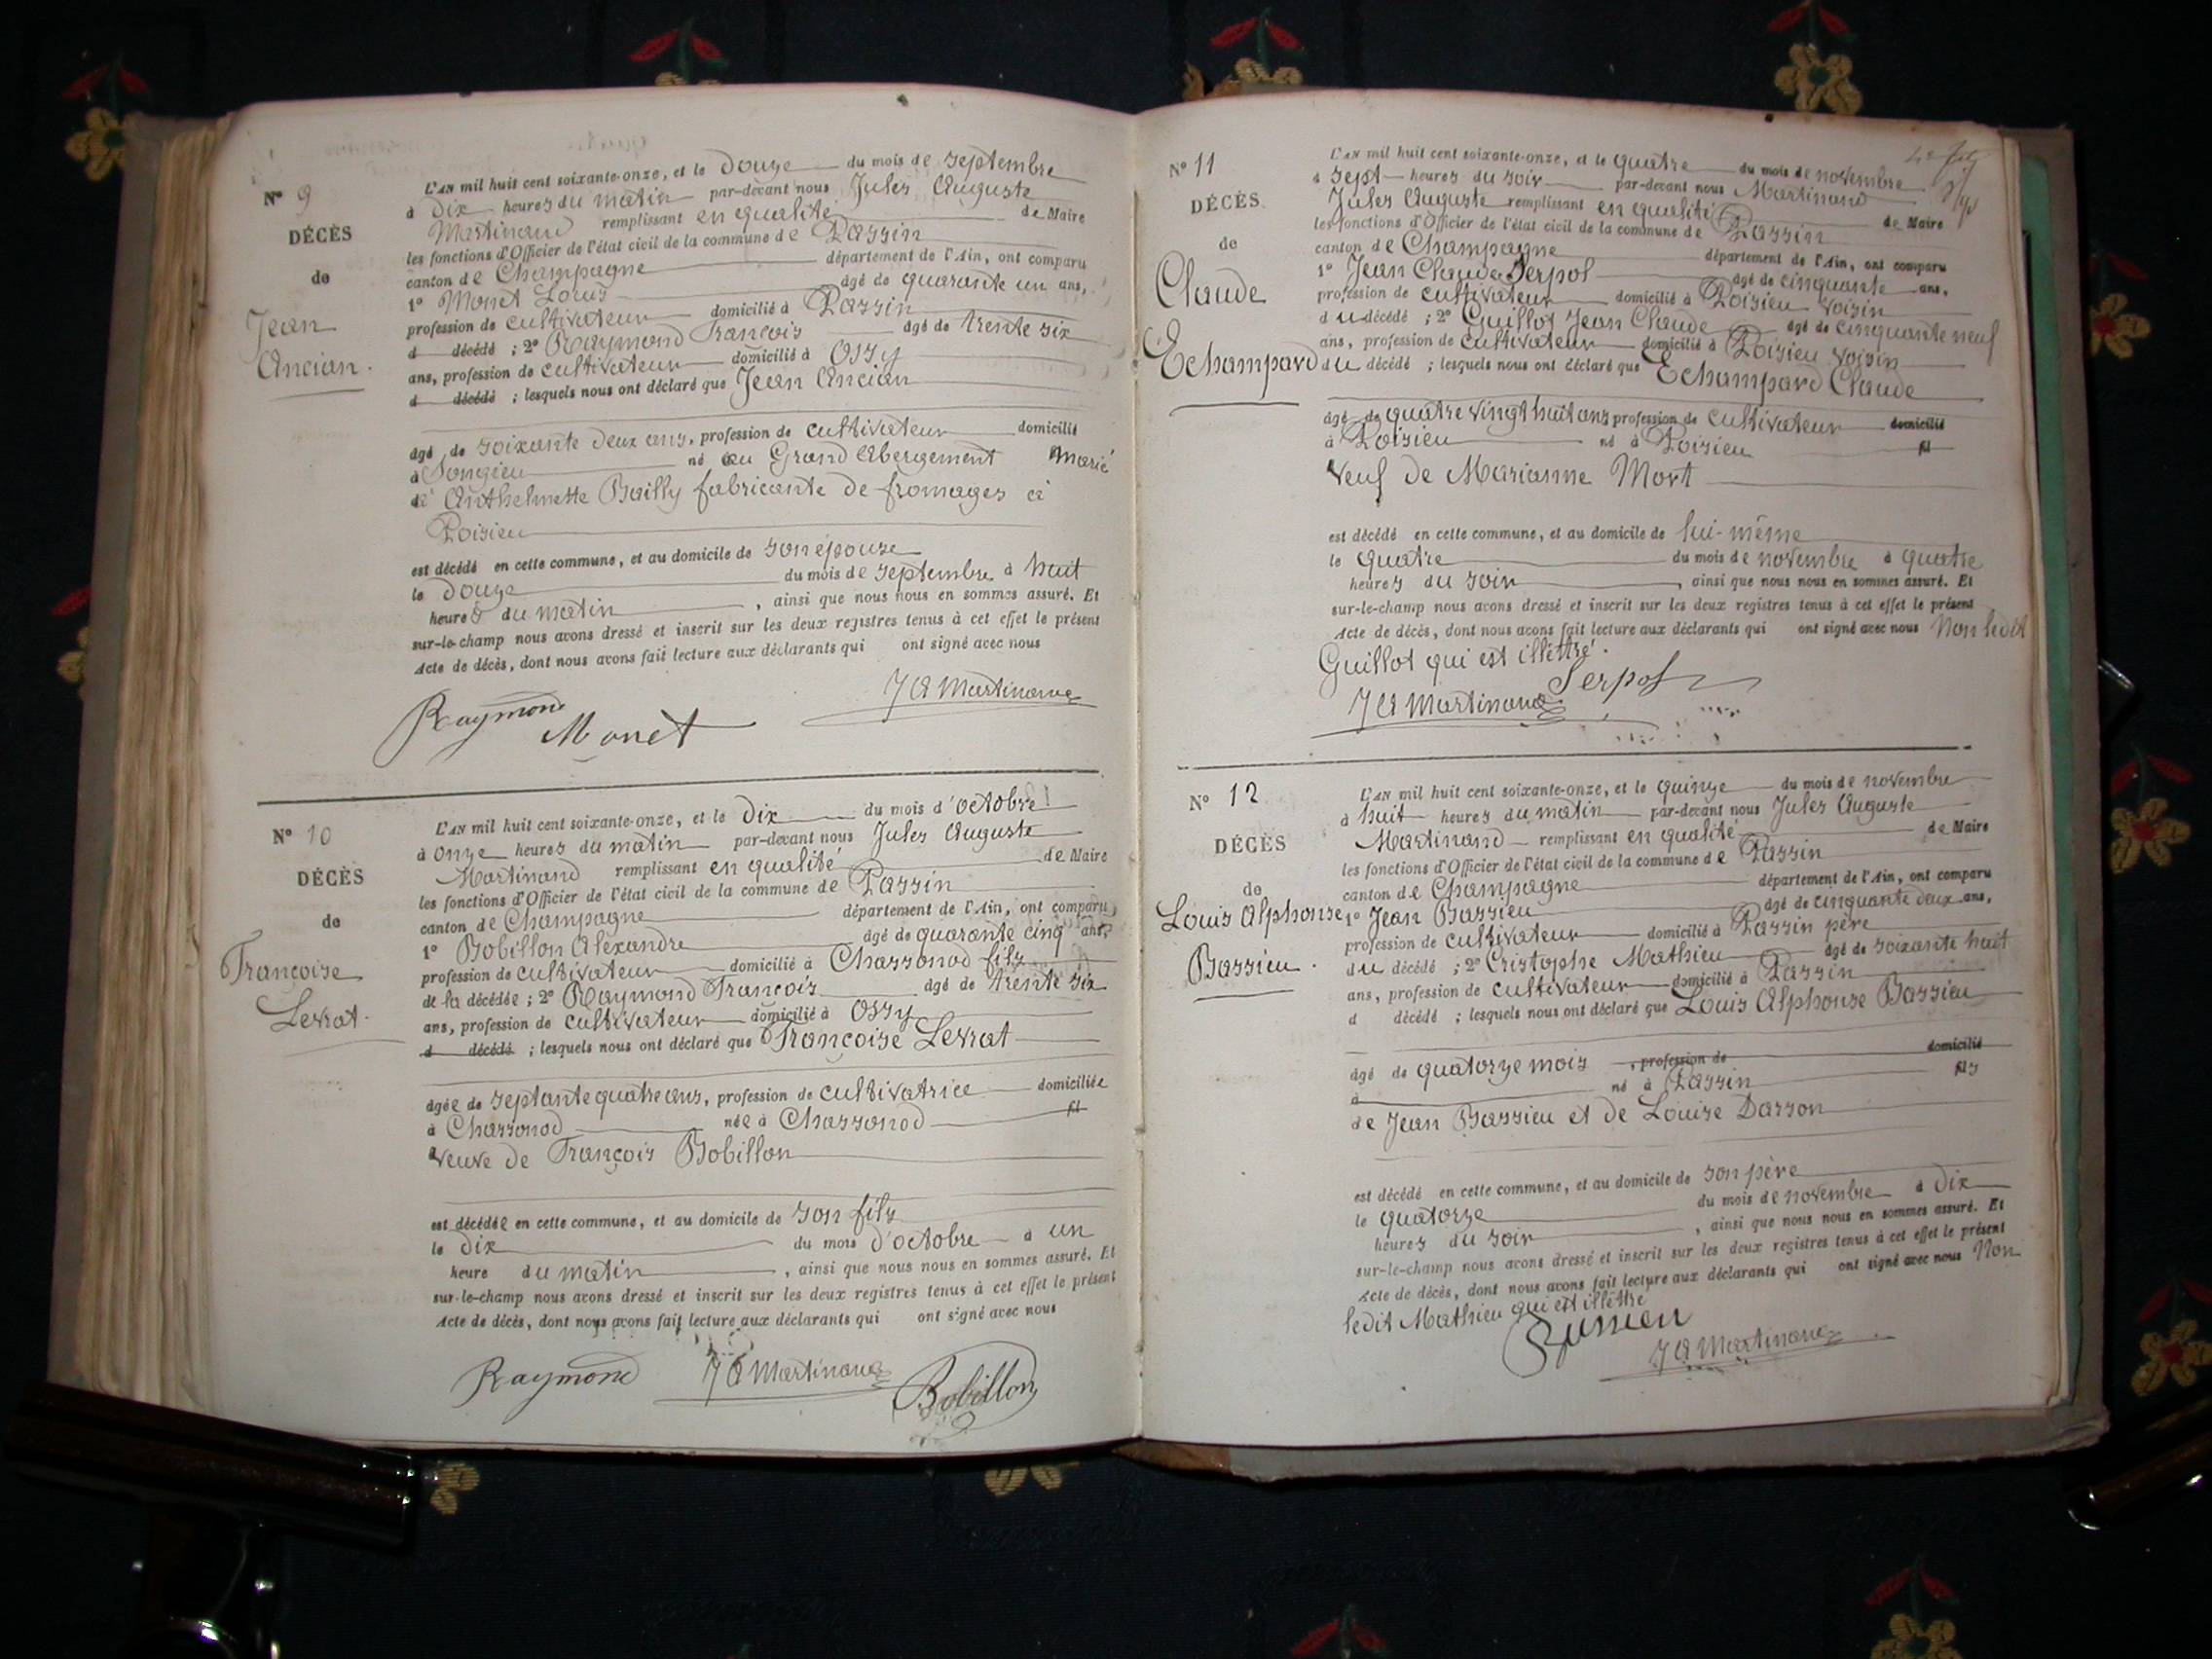 N° 9
DÉCÈS
de
Jean
Ancian.
L'AN mil huit cent soixante-onze, et le Douze du mois de septembre
à Dix heures du matin par-devant nous Jules Auguste
Martinand remplissant en qualité de Maire
les fonctions d'Officier de l'état civil de la commune de Passin
canton de Champagne département de l'Ain, ont comparu
1° Monet Louis âgé de quarante un ans,
profession de cultivateur domicilié à Passin
d décédé ; 2° Raymond François âgé de trente six
ans, profession de cultivateur domicilié à Ossy
d décédé ; lesquels nous ont déclaré que Jean Ancian
âgé de soixante deux ans, profession de cultivateur domicilié
à Songieu né au Grand Abergement marié
à Anthelmette Bailly fabricante de fromages à
Poisieu
est décédé en cette commune, et au domicile de son épouse
le douze du mois de septembre à huit
heures du matin, ainsi que nous nous en sommes assuré. Et
sur-le-champ nous avons dressé et inscrit sur les deux registres tenus à cet effet le présent
Acte de décès, dont nous avons fait lecture aux déclarants qui ont signé avec nous
Raymond
Monet
J A Martinand
N° 10
DÉCÈS
de
Françoise
Levrat.
L'AN mil huit cent soixante-onze, et le Dix du mois d'octobre
à onze heures du matin par-devant nous Jules Auguste
Martinand remplissant en qualité de Maire
les fonctions d'Officier de l'état civil de la commune de Passin
canton de Champagne département de l'Ain, ont comparu
1° Bobillon Alexandre âgé de quarante cinq ans,
profession de cultivateur domicilié à Chassonod fils
de la décédée ; 2° Raymond François âgé de trente six
ans, profession de cultivateur domicilié à Ossy
d décédé ; lesquels nous ont déclaré que Françoise Levrat
âgée de septante quatre ans, profession de cultivatrice domiciliée
à Chassonod née à Chassonod fil
veuve de François Bobillon
est décédée en cette commune, et au domicile de son fils
le dix du mois d'octobre à un
heure du matin, ainsi que nous nous en sommes assuré. Et
sur-le-champ nous avons dressé et inscrit sur les deux registres tenus à cet effet le présent
Acte de décès, dont nous avons fait lecture aux déclarants qui ont signé avec nous
Raymond J A Martinand Bobillon
N° 11
DÉCÈS
de
Claude
Echampard
L'AN mil huit cent soixante-onze, et le quatre du mois de novembre
à sept heures du soir par-devant nous Martinand
Jules Auguste remplissant en qualité de Maire
les fonctions d'Officier de l'état civil de la commune de Passin
canton de Champagne département de l'Ain, ont comparu
1° Jean Claude Serpol âgé de cinquante ans,
profession de cultivateur domicilié à Poisieu voisin
du décédé ; 2° Guillot Jean Claude âgé de cinquante neuf
ans, profession de cultivateur domicilié à Poisieu voisin
du décédé ; lesquels nous ont déclaré que Echampard Claude
âgé de quatre vingt huit ans profession de cultivateur domicilié
à Poisieu né à Poisieu fil
veuf de Marianne Mort
est décédé en cette commune, et au domicile de lui-même
le quatre du mois de novembre à quatre
heures du soir, ainsi que nous nous en sommes assuré. Et
sur-le-champ nous avons dressé et inscrit sur les deux registres tenus à cet effet le présent
Acte de décès, dont nous avons fait lecture aux déclarants qui ont signé avec nous Non ledit
Guillot qui est illettré.
Serpol
J A Martinand
N° 12
DÉCÈS
de
Louis Alphonse
Bassieu.
L'AN mil huit cent soixante-onze, et le quinze du mois de novembre
à huit heures du matin par-devant nous Jules Auguste
Martinand remplissant en qualité de Maire
les fonctions d'Officier de l'état civil de la commune de Passin
canton de Champagne département de l'Ain, ont comparu
1° Jean Bassieu âgé de cinquante deux ans,
profession de cultivateur domicilié à Passin père
du décédé ; 2° Cristophe Mathieu âgé de soixante huit
ans, profession de cultivateur domicilié à Passin
d décédé ; lesquels nous ont déclaré que Louis Alphonse Bassieu
âgé de quatorze mois, profession de domicilié
à né à Passin fils
de Jean Bassieu et de Louise Darson
est décédé en cette commune, et au domicile de son père
le quatorze du mois de novembre à dix
heures du soir, ainsi que nous nous en sommes assuré. Et
sur-le-champ nous avons dressé et inscrit sur les deux registres tenus à cet effet le présent
Acte de décès, dont nous avons fait lecture aux déclarants qui ont signé avec nous Non
ledit Mathieu qui est illettré
J A Martinand